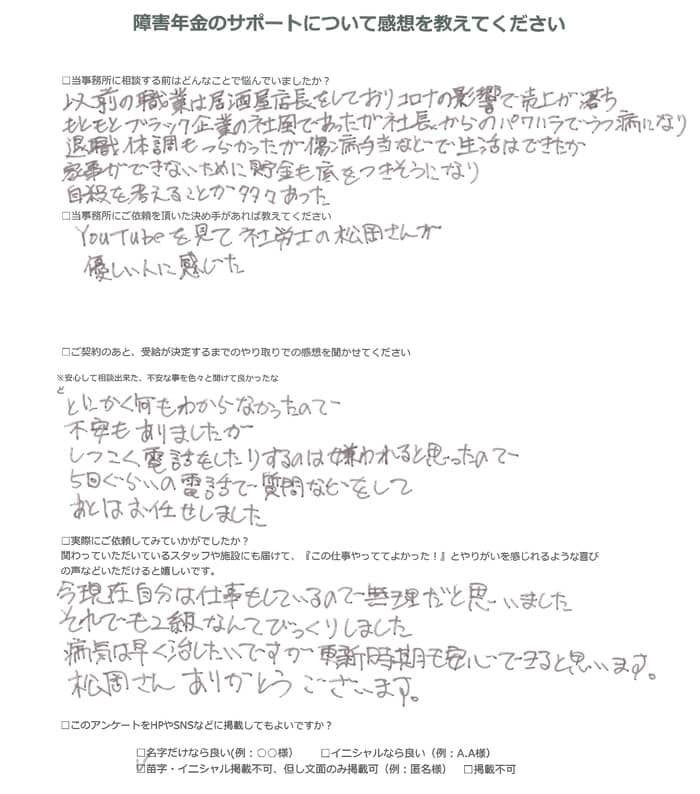 障害年金のサポートについて感想を教えてください
□当事務所に相談する前はどんなことで悩んでいましたか？
以前の職業は居酒屋店長をしておりコロナの影響で売上が落ち
もともとブラック企業の社風であったが社長からのパワハラでうつ病になり
退職 体調もつらかったが傷病手当などで生活はできたが
家事ができないために貯金も底をつきそうになり
自殺を考えることが多々あった
□当事務所にご依頼を頂いた決め手があれば教えてください
YouTubeを見て社労士の松岡さんが
優しい人に感じた
□ご契約のあと、受給が決定するまでのやり取りでの感想を聞かせてください
※安心して相談出来た、不安な事を色々と聞けて良かったな
ど
とにかく何もわからなかったので
不安もありましたが
しつこく電話をしたりするのは嫌われると思ったので
5回ぐらいの電話で質問などをして
あとはお任せしました
□実際にご依頼してみていかがでしたか？
関わっていただいているスタッフや施設にも届けて、『この仕事やっててよかった！』とやりがいを感じれるような喜び
の声などいただけると嬉しいです。
今現在自分は仕事もしているので無理だと思いました
それでも2級なんてびっくりしました
病気は早く治したいですが更新時期も安心できると思います。
松岡さんありがとうございます。
□このアンケートをHPやSNSなどに掲載してもよいですか？
□名字だけなら良い(例：○○様) □イニシャルなら良い（例：A.A様）
☑苗字・イニシャル掲載不可、但し文面のみ掲載可（例：匿名様） □掲載不可